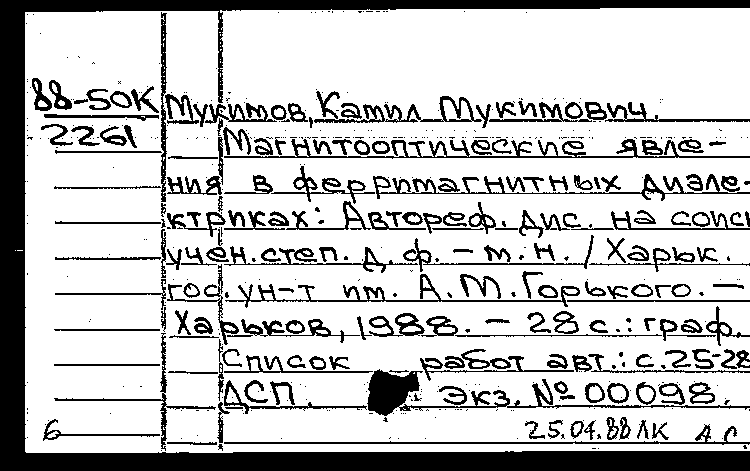 88-50К
2261
Мукимов, Камил Мукимович.
Магнитооптические явле-
ния в ферримагнитных диэле-
ктриках: Автореф. дис. на соиск
учен. степ. д. ф. - м. н. / Харьк.
гос. ун-т им. А. М. Горького. -
Харьков, 1988. - 28 с.: граф.
Список работ авт.: с. 25-28
ДСП. Экз. № 00098.
6 25.04.88 ЛК А.С.